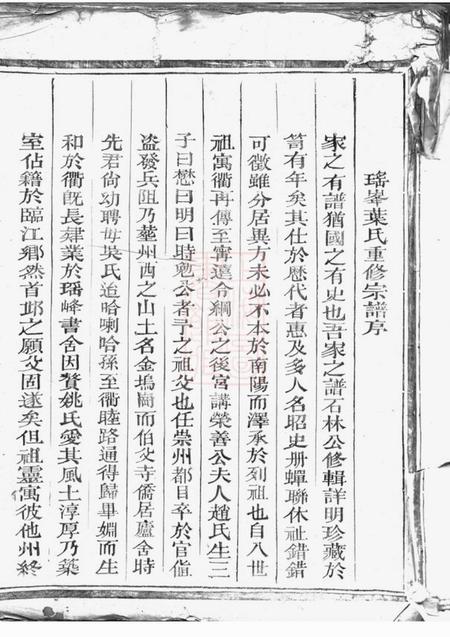 瑤峯葉氏重修宗譜序
家之有譜猶國之有史也吾家之譜石林公修輯詳明珍藏於
笥有年矣其仕於歷代者惠及多人名昭史册蟬聯休祉錯錯
可徵雖分居異方未必不本於南陽而澤承於列祖也自八世
祖寓衢再傳至甯遠令綱公之後宮講榮善公夫人趙氏生三
子曰懋曰明曰時勉公者予之祖父也任崇州都目卒於官值
盗發兵阻乃塟州西之山土名金塢崗而伯父寺僑居廬舍時
先君尙幼聘毋吳氏迨哈喇哈孫至衢睦路通得歸畢婣而生
和於衢旣長肄業於瑤峰書舍因贅姚氏愛其風土淳厚乃築
室佔籍於臨江鄉然首邱之願父固遂矣但祖靈寓彼他州終